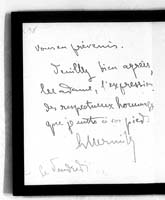 vous en prévenir.
Veuillez bien agréer,
Madame, l'expression
des respectueux hommages
que je mets à vos pieds
ce Vendredi